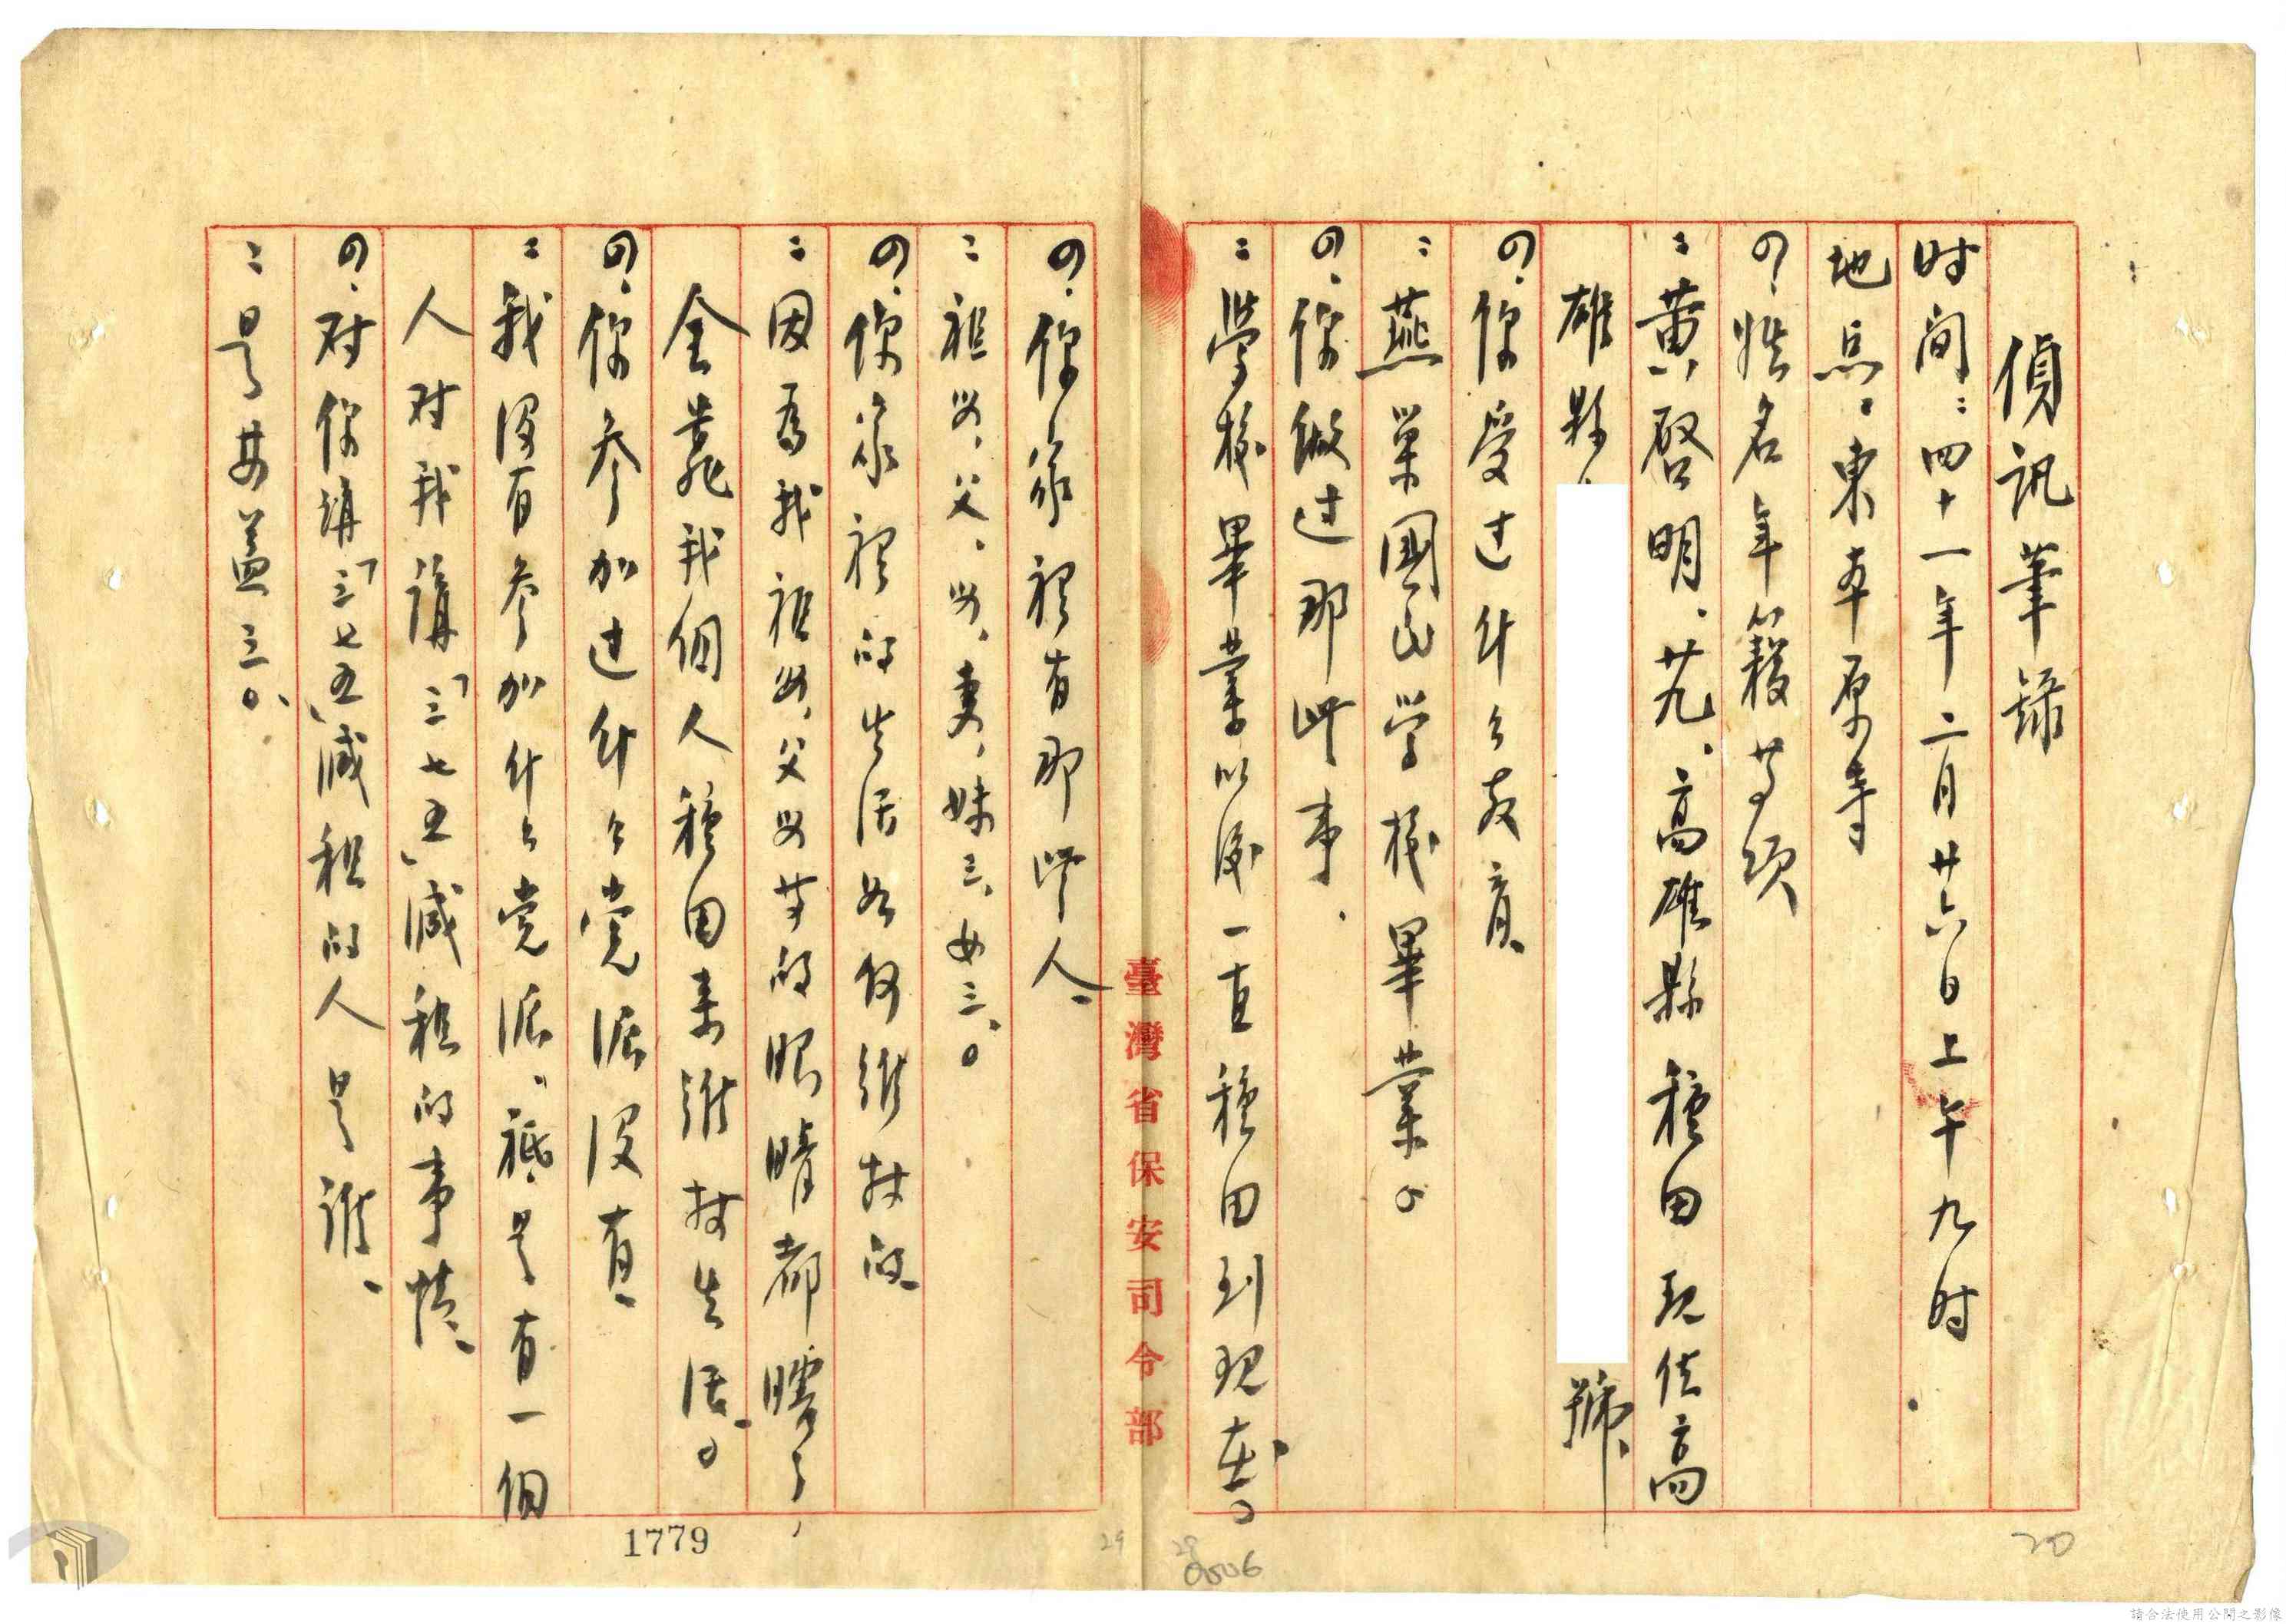 偵訊筆錄
时间：四十一年二月廿六日上午九时.
地点：東本原寺
の、姓名年籍等項
：黄啓明、廿九、高雄縣種田現住高
雄縣
號、
の、你受过什么教育、
：燕巢國民学校畢業。
の、你做过那些事、
：學校畢業以後一直種田到現在。
の、你家裡有那些人、
：祖母、父、母、妻、妹三、女三、。
の、你家裡的生活如何維持的、
：因為我祖母、父母等的眼睛都瞎了，
全靠我個人種田来維持生活。
の、你参加过什么党派沒有、
：我沒有参加什么党派、祗是有一個
人对我講「三七五」減租的事情、
の、对你講「三七五」減租的人是誰、
：是林益三。
臺灣省保安司令部
1779
29
29
0506
20
請合法使用公開之影像